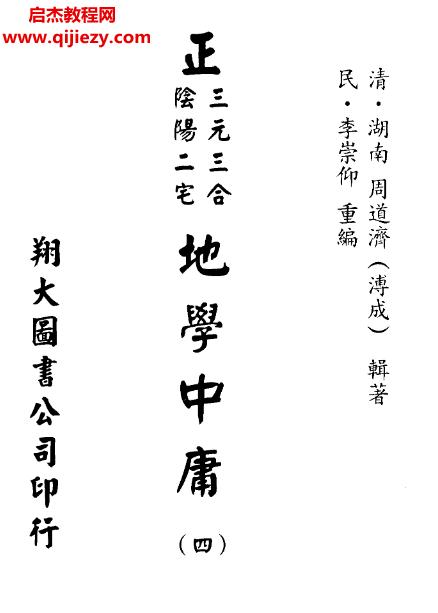 启杰教程网
www.qijiezy.com
清·湖南 周道濟(溥成) 輯著
民·李崇仰 重編
正
三元三合
陰陽二宅
地學中庸
(四)
翔大圖書公司印行